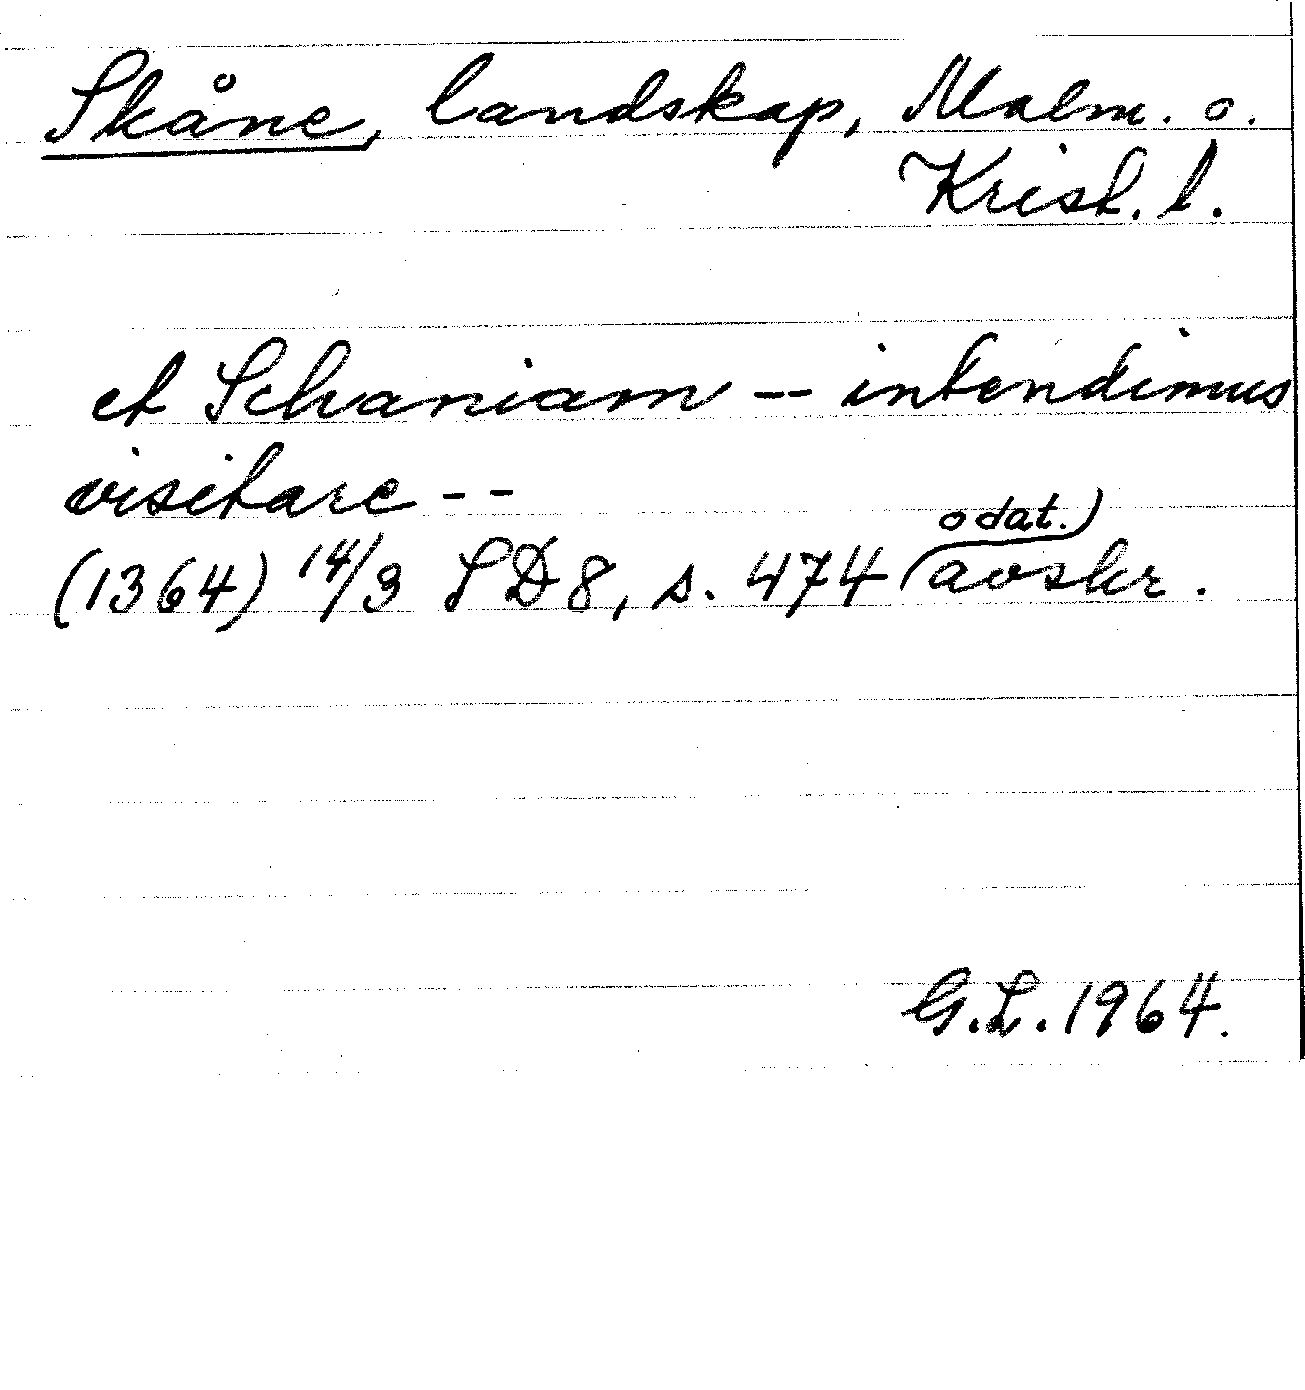 Skåne, landskap, Malm. o.
Krist. l.
et Schaniam -- intendimus
visitare --
odat.)
(1364) 14/3 SD 8, s. 474 (avskr.
G.L. 1964.